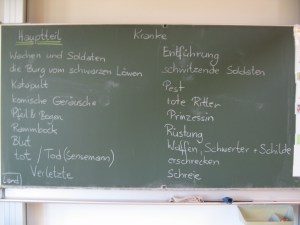 Hauptteil
Kranke
Wachen und Soldaten
die Burg vom schwarzen Löwen
Katapult
komische Geräusche
Pfeil & Bogen
Rammbock
Blut
tot / Tod (Sensemann)
Verletzte
Entführung
schwitzende Soldaten
Pest
rote Ritter
Prinzessin
Rüstung
Waffen, Schwerter + Schilde
erschrecken
Schreie